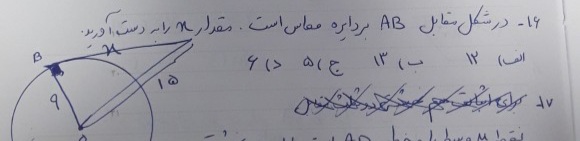 ۱۶- در شکل مقابل AB بر دایره مماس است. مقدار x را به دست آورید.
الف) ۱۲ ب) ۱۳ ج) ۵ د) ۶
B
x
۱۵
۹
۱۷-